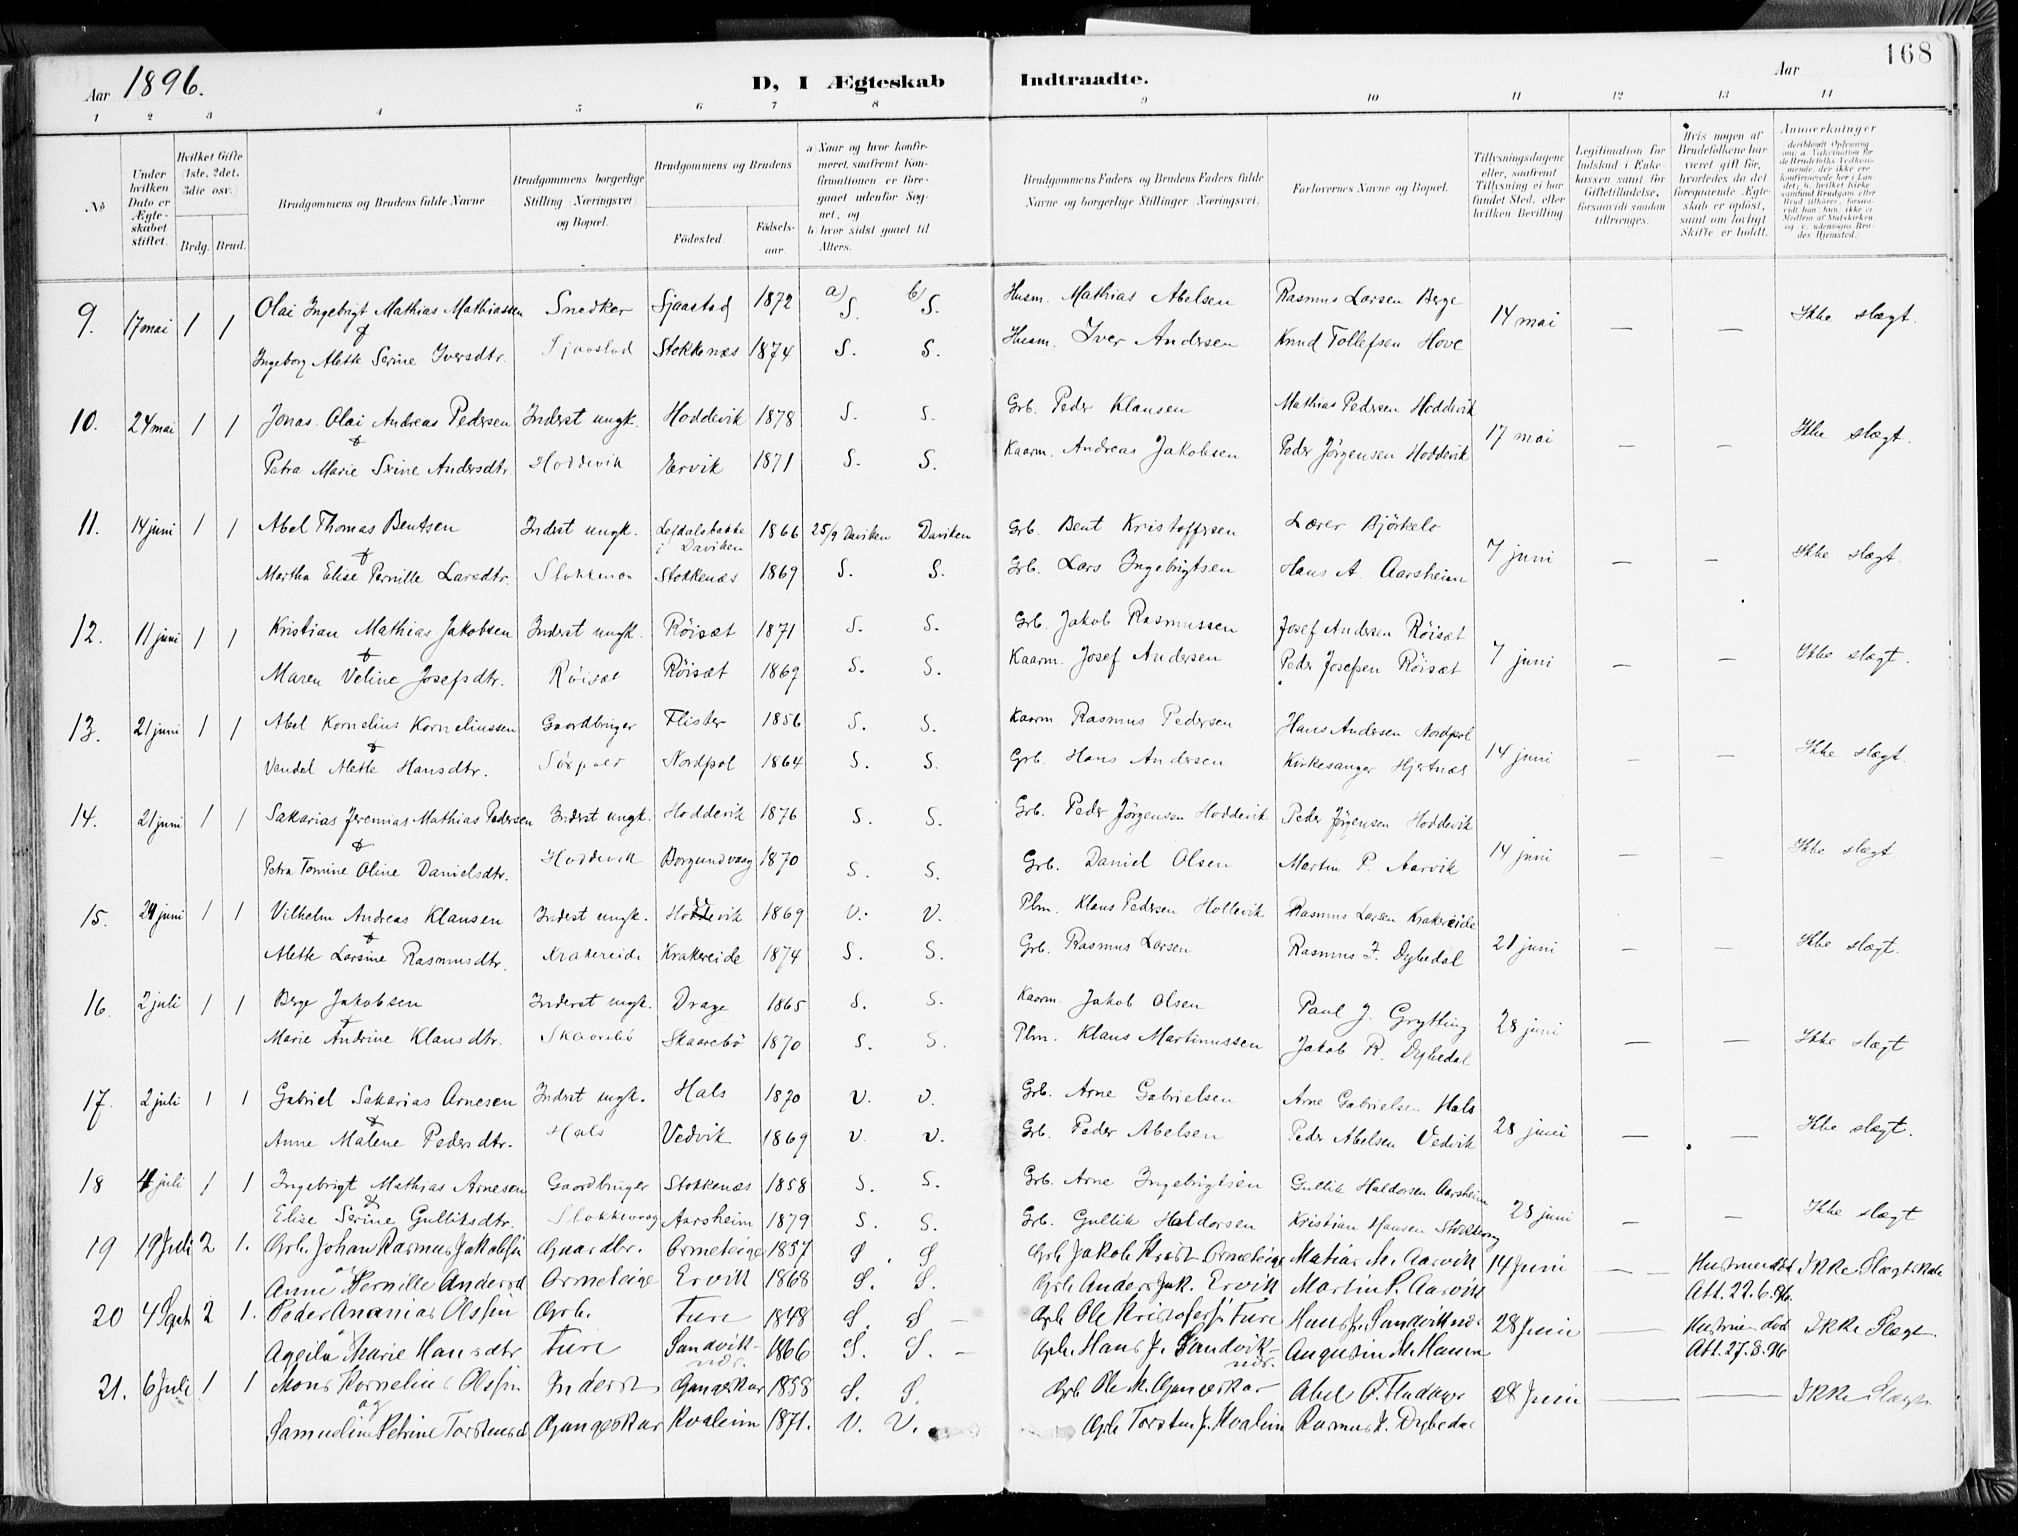 168
Aar 1896. D, I Ægteskab Indtraadte. Aar
1 2 3 4 5 6 7 8 9 10 11 12 13 14
№
Under hvilken Dato er Ægteskabet stiftet.
Hvilket Gifte (1ste, 2det, 3die osv.)
Brdg. Brud.
Brudgommens og Brudens fulde Navne
Brudgommens borgerlige Stilling (Næringsvei) og Bopæl.
Brudgommens og Brudens
Fødested.
Fødselsaar.
a) Naar og hvor konfirmeret, saafremt Konfirmationen er foregaaet udenfor Sognet, og
b) hvor sidst gaaet til Alters.
Brudgommens Faders og Brudens Faders fulde Navne og borgerlige Stillinger (Næringsvei).
Forlovernes Navne og Bopæl.
Tillysningsdagene eller, saafremt Tillysning ei har fundet Sted, efter hvilken Bevilling
Legitimation for Indskud i Enkekassen samt for Giftetilladelse, forsaavidt saadan tiltrænges.
Hvis nogen af Brudefolkene har været gift før, hvorledes da det foregaaende Ægteskab er opløst, samt om lovligt Skifte er holdt.
Anmerkninger
9. 17 mai 1 1 Olai Ingebrigt Mathias Mathiassen Snedker Sjaastad 1872 a) S. b) S. Husm. Mathias Abelsen Rasmus Larsen Berge 14 mai — — Ikke slægt.
& Ingeborg Alette Serine Iversdtr. Sjaastad Stokkenæs 1874 S. S. Husm. Iver Andersen Knud Tollefsen Hove
10. 24 mai 1 1 Jonas Olai Andreas Pedersen Inderst ungk. Hoddevik 1878 S. S. Grb. Peder Klausen Mathias Pedersen Hoddevik 17 mai — — Ikke slægt.
& Petra Marie Serine Andersdtr. Hoddevik Ervik 1871 S. S. Kaarm. Andreas Jakobsen Peder Jørgensen Hoddevik
11. 14 juni 1 1 Abel Thomas Bentsen Inderst ungk. Lefdalsbakke i Daviken 1866 25/9 Daviken Daviken Grb. Bent Kristoffersen Lærer Bjørkelo 7 juni — — Ikke slægt.
& Martha Elise Pernille Larsdtr. Stokkenæs Stokkenæs 1869 S. S. Grb. Lars Ingebrigtsen Hans A. Aarsheim
12. 11 juni 1 1 Kristian Mathias Jakobsen Inderst ungk. Røisæt 1871 S. S. Grb. Jakob Rasmussen Josef Andersen Røisæt 7 juni — — Ikke slægt.
& Maren Veline Josefsdtr. Røisæt Røisæt 1869 S. S. Kaarm. Josef Andersen Peder Josefsen Røisæt
13. 21 juni 1 1 Abel Kornelius Korneliussen Gaardbruger Flister 1856 S. S. Kaarm. Rasmus Pedersen Hans Andersen Nordpol 14 juni — — Ikke slægt.
& Vendel Alette Hansdtr. Sørpoll Nordpol 1864 S. S. Grb. Hans Andersen Kirkesanger Hjertnæs
14. 21 juni 1 1 Sakarias Jeremias Mathias Pedersen Inderst ungk. Hoddevik 1876 S. S. Grb. Peder Jørgensen Hoddevik Peder Jørgensen Hoddevik 14 juni — — Ikke slægt
& Petra Tomine Oline Danielsdtr. Hoddevik Borgundvaag 1870 S. S. Grb. Daniel Olsen Martin P. Aarvik
15. 24 juni 1 1 Vilhelm Andreas Klausen Inderst ungk. 1869 V. V. Plm. Klaus Pedersen Hollevik Rasmus Larsen Krakereide 21 juni — — Ikke slægt.
& Alette Larsine Rasmusdtr. Krakereide Krakereide 1874 S. S. Grb. Rasmus Larsen Rasmus J. Dybedal
16. 2 juli 1 1 Berge Jakobsen Inderst ungk. Drage 1865 S. S. Kaarm. Jakob Olsen Paul J. Grytting 28 juni — — Ikke slægt
& Marie Andrine Klausdtr. Skaarebø Skaarebø 1870 S. S. Plm. Klaus Martinussen Jakob R. Dybedal
17. 2 juli 1 1 Gabriel Sakarias Arnesen Inderst ungk. Hals 1870 V. V. Grb. Arne Gabrielsen Arne Gabrielsen Hals 28 juni — — Ikke slægt.
& Anne Malene Pedersdtr. Hals Vedvik 1869 V. V. Grb. Peder Abelsen Peder Abelsen Vedvik
18 4 juli 1 1 Ingebrigt Mathias Arnesen Gaardbruger Stokkenæs 1858 S. S. Grb. Arne Ingebrigtsen Gullik Haldorsen Aarsheim 28 juni — — Ikke slægt
& Elise Serine Gulliksdtr. Stokkevaag Aarsheim 1879 S. S. Grb. Gullik Haldorsen Kristian Hansen
19 19 Juli 2 1. Grb. Johan Rasmus Jakobsen Gaardbr. Ormeteige 1857 S. S. Grb Jakob Ormeteige Matias M. Aarvik 14 Juni — — Hustruen død Att. 22.6.96. Ikke Slægtskab
Anne Pernille Andersd Ormeteige Ervik 1868 S. S. Grb Anders Jak. Ervik Martin P. Aarvik
20 4 Sept 2 1. Peder Ananias Olssen Grb. Ture 1848 S. S. — Grb Ole Ture Hans J. Sandviknæs 28 Juni — Hustruen død Att. 27.8.96 Ikke Slegt
Marie Hansdtr Ture Sandviknæs. 1866 S. S. — Grb. Hans J. Sandviknæs. Augustin M. Hansen
21. 6 Juli 1 1 Mons Kornelius Olssen Inderst Gangeskar 1858 S. S. Grb Ole M. Gangeskar Abel 28 Juni — — Ikke Slægt
og Samueline Petrine Torstensd Gangeskar Kvaleim 1871. V. V. Grb Torsten J. Kvaleim Rasmus J. Dybedal